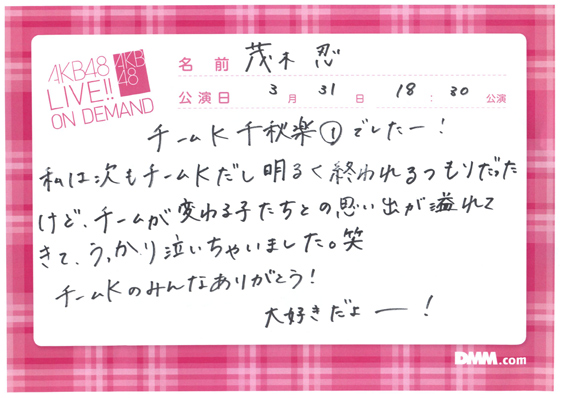 AKB48
LIVE!!
ON DEMAND
AKB
48
名前 茂木 忍
公演日 3月 31日 18:30 公演
チームK 千秋楽①でしたー!
私は次もチームKだし明るく終われるつもりだった
けど、チームが変わる子たちとの思い出が溢れて
きて、うっかり泣いちゃいました。笑
チームKのみんなありがとう!
大好きだよー!
DMM.com